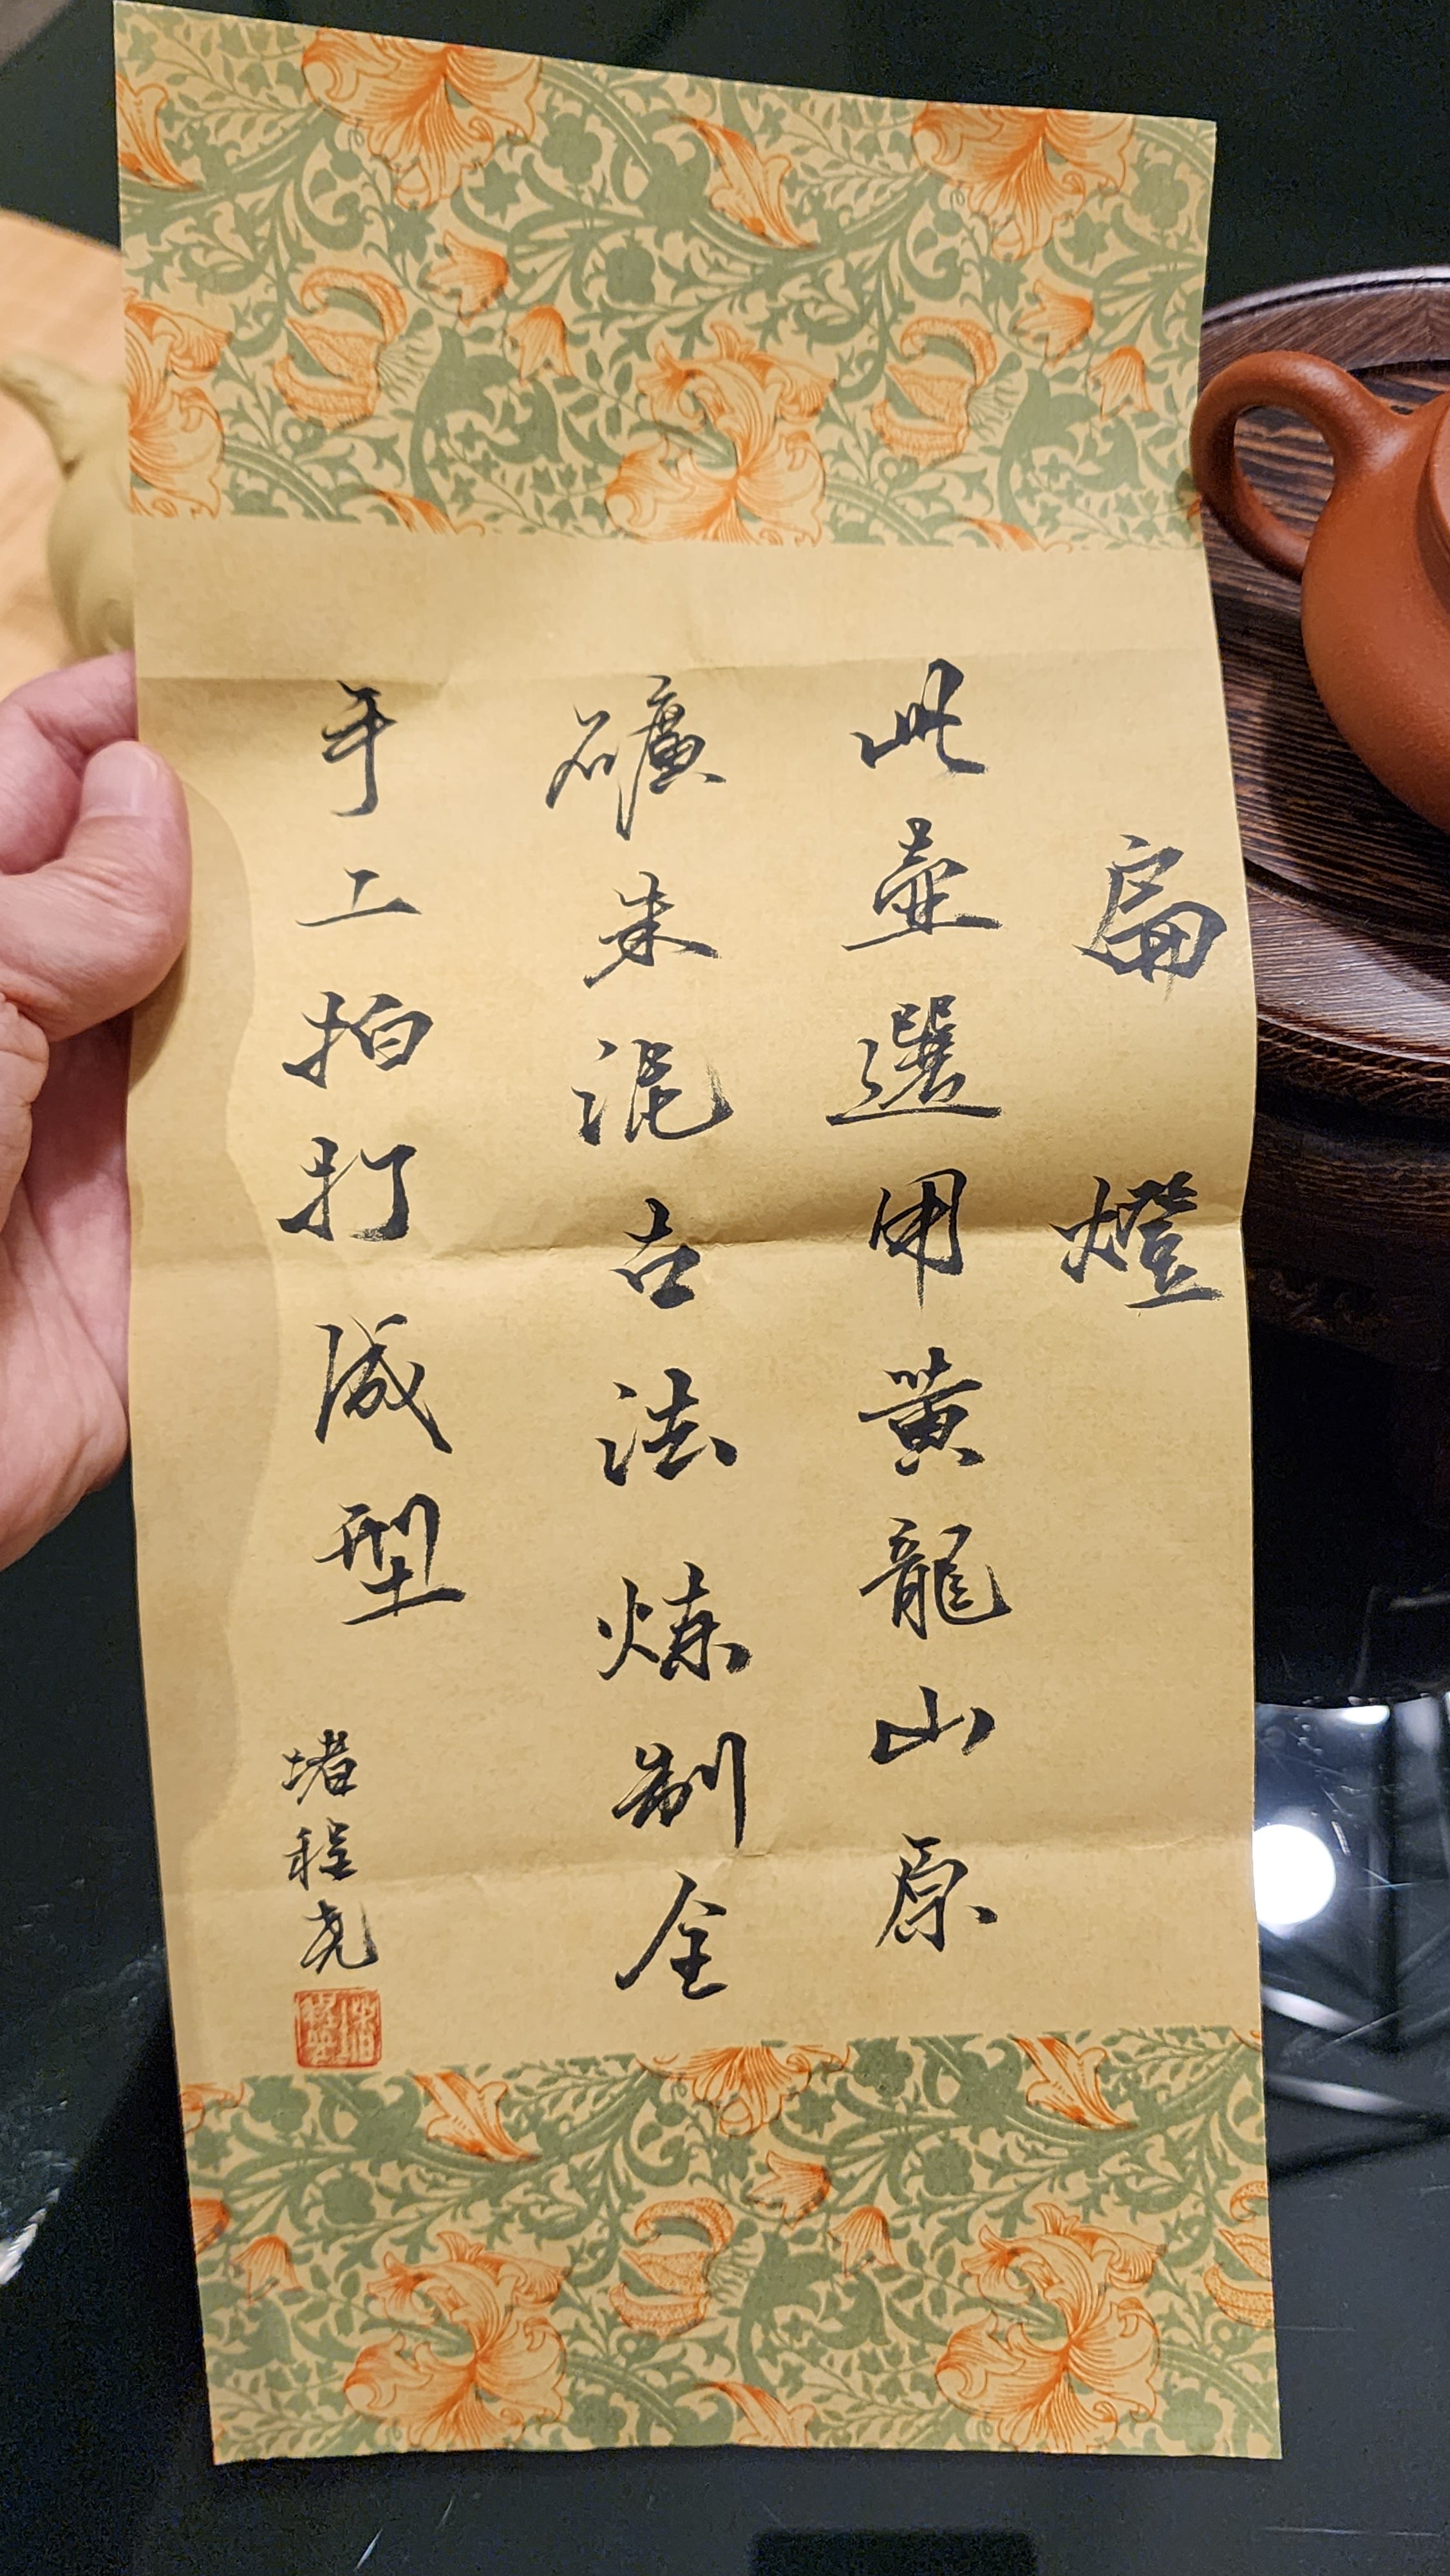 扁燈
此壺選用黃龍山原
礦朱泥古法炼制全
手工拍打成型
堵程尧